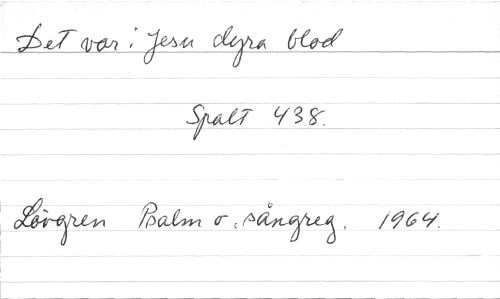 Det var i Jesu dyra blod
Spalt 438.
Lövgren Psalm o. sångreg. 1964.